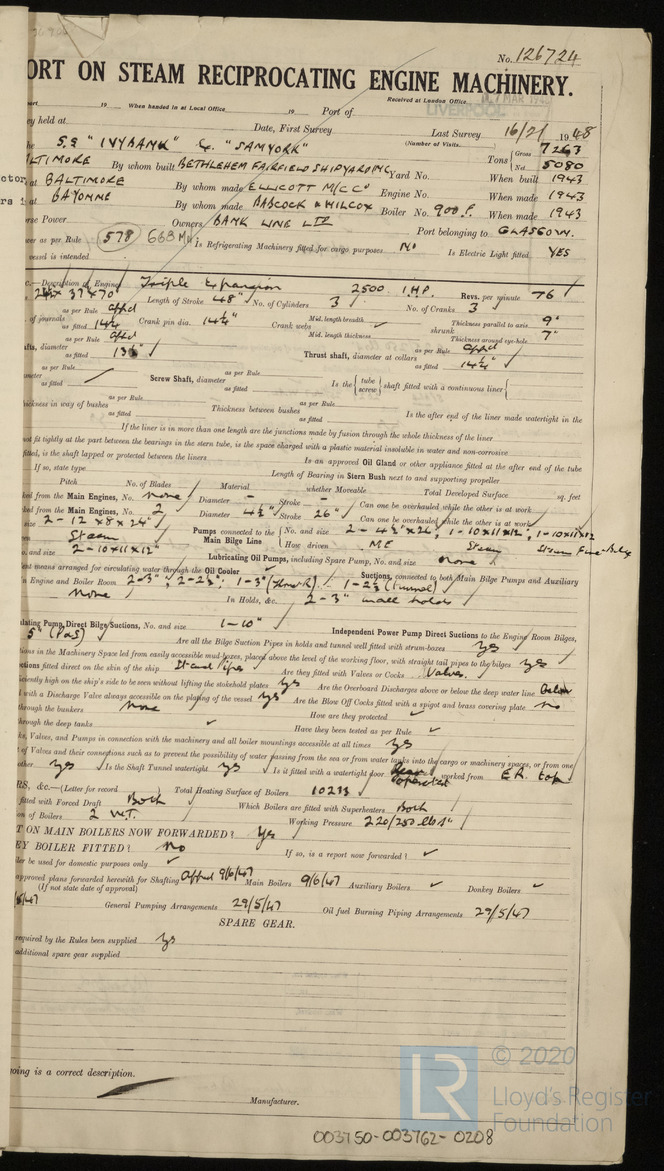 No. 126724
ORT ON STEAM RECIPROCATING ENGINE MACHINERY.
19 When handed in at Local Office 19 Port of Received at London Office
LIVERPOOL
held at Date, First Survey Last Survey 16/21 1948
(Number of Visits
S.S "IVYBANK" Ex "SAMYORK" Tons Gross 7263
Net 5080
LTIMORE By whom built BETHLEHEM FAIRFIELD SHIPYARD INC Yard No. When built 1943
at BALTIMORE By whom made ELLICOTT M/C Co Engine No. When made 1943
at BAYONNE By whom made BABCOCK & WILCOX Boiler No. 900 F. When made 1943
Power Owners BANK LINE LTD Port belonging to GLASGOW.
as per Rule 578 Is Refrigerating Machinery fitted for cargo purposes No Is Electric Light fitted YES
vessel is intended
Description of Engines Triple Expansion 2500 I.H.P. Revs. per minute 76
x 37 x 70 Length of Stroke 48" No. of Cylinders 3 No. of Cranks 3
of journals as per Rule appd as fitted 14¼ Crank pin dia. 14¼" Crank webs Mid. length breadth shrunk Thickness parallel to axis 9"
Mid. length thickness Thickness around eye-hole 7"
as per Rule appd as fitted 13½ Thrust shaft, diameter at collars as per Rule appd as fitted 14¼"
as per Rule as fitted Screw Shaft, diameter as per Rule as fitted Is the { tube screw } shaft fitted with a continuous liner {
thickness in way of bushes as per Rule as fitted Thickness between bushes as per Rule as fitted Is the after end of the liner made watertight in the
If the liner is in more than one length are the junctions made by fusion through the whole thickness of the liner
not fit tightly at the part between the bearings in the stern tube, is the space charged with a plastic material insoluble in water and non-corrosive
fitted, is the shaft lapped or protected between the liners Is an approved Oil Gland or other appliance fitted at the after end of the tube
If so, state type Length of Bearing in Stern Bush next to and supporting propeller
Pitch No. of Blades Material whether Moveable Total Developed Surface sq. feet
ked from the Main Engines, No. none Diameter - Stroke - Can one be overhauled while the other is at work
ked from the Main Engines, No. 2 Diameter 4½" Stroke 26" Can one be overhauled while the other is at work
size 2 - 12 x 8 x 24" Pumps connected to the Main Bilge Line { No. and size 2 - 4½" x 26", 1 - 10x11x12, 1 - 10x11x12
Steam How driven M.E Steam Steam
o. and size 2 - 10x11x12" Lubricating Oil Pumps, including Spare Pump, No. and size none
ent means arranged for circulating water through the Oil Cooler Suctions, connected to both Main Bilge Pumps and Auxiliary
n Engine and Boiler Room 2 - 3", 2 - 2½", 1 - 3" 1 - 2½ (Tunnel)
none In Holds, &c. 2 - 3" in all holds
lating Pump Direct Bilge Suctions, No. and size 1 - 10" Independent Power Pump Direct Suctions to the Engine Room Bilges,
5" (P&S) Are all the Bilge Suction Pipes in holds and tunnel well fitted with strum-boxes Yes
ions in the Machinery Space led from easily accessible mud-boxes, placed above the level of the working floor, with straight tail pipes to the bilges yes
ctions fitted direct on the skin of the ship Stand Pipes Are they fitted with Valves or Cocks Valves.
iciently high on the ship's side to be seen without lifting the stokehold plates Yes Are the Overboard Discharges above or below the deep water line Below
d with a Discharge Valve always accessible on the plating of the vessel Yes Are the Blow Off Cocks fitted with a spigot and brass covering plate No
through the bunkers none How are they protected
through the deep tanks Have they been tested as per Rule
ks, Valves, and Pumps in connection with the machinery and all boiler mountings accessible at all times yes
t of Valves and their connections such as to prevent the possibility of water passing from the sea or from water tanks into the cargo or machinery spaces, or from one
other Yes Is the Shaft Tunnel watertight Yes Is it fitted with a watertight door operated worked from E.R. top
RS, &c.—(Letter for record) Total Heating Surface of Boilers 10233
fitted with Forced Draft Both Which Boilers are fitted with Superheaters Both
on of Boilers 2 W.T. Working Pressure 220/250 lbs/"
T ON MAIN BOILERS NOW FORWARDED? Yes
EY BOILER FITTED? No If so, is a report now forwarded?
ler be used for domestic purposes only
approved plans forwarded herewith for Shafting Appd 9/6/47 Main Boilers 9/6/47 Auxiliary Boilers Donkey Boilers
(If not state date of approval)
/5/47 General Pumping Arrangements 29/5/47 Oil fuel Burning Piping Arrangements 29/5/47
SPARE GEAR.
required by the Rules been supplied Yes
additional spare gear supplied
going is a correct description.
Manufacturer.
© 2020
LR Lloyd's Register
Foundation
003750-003762-0208